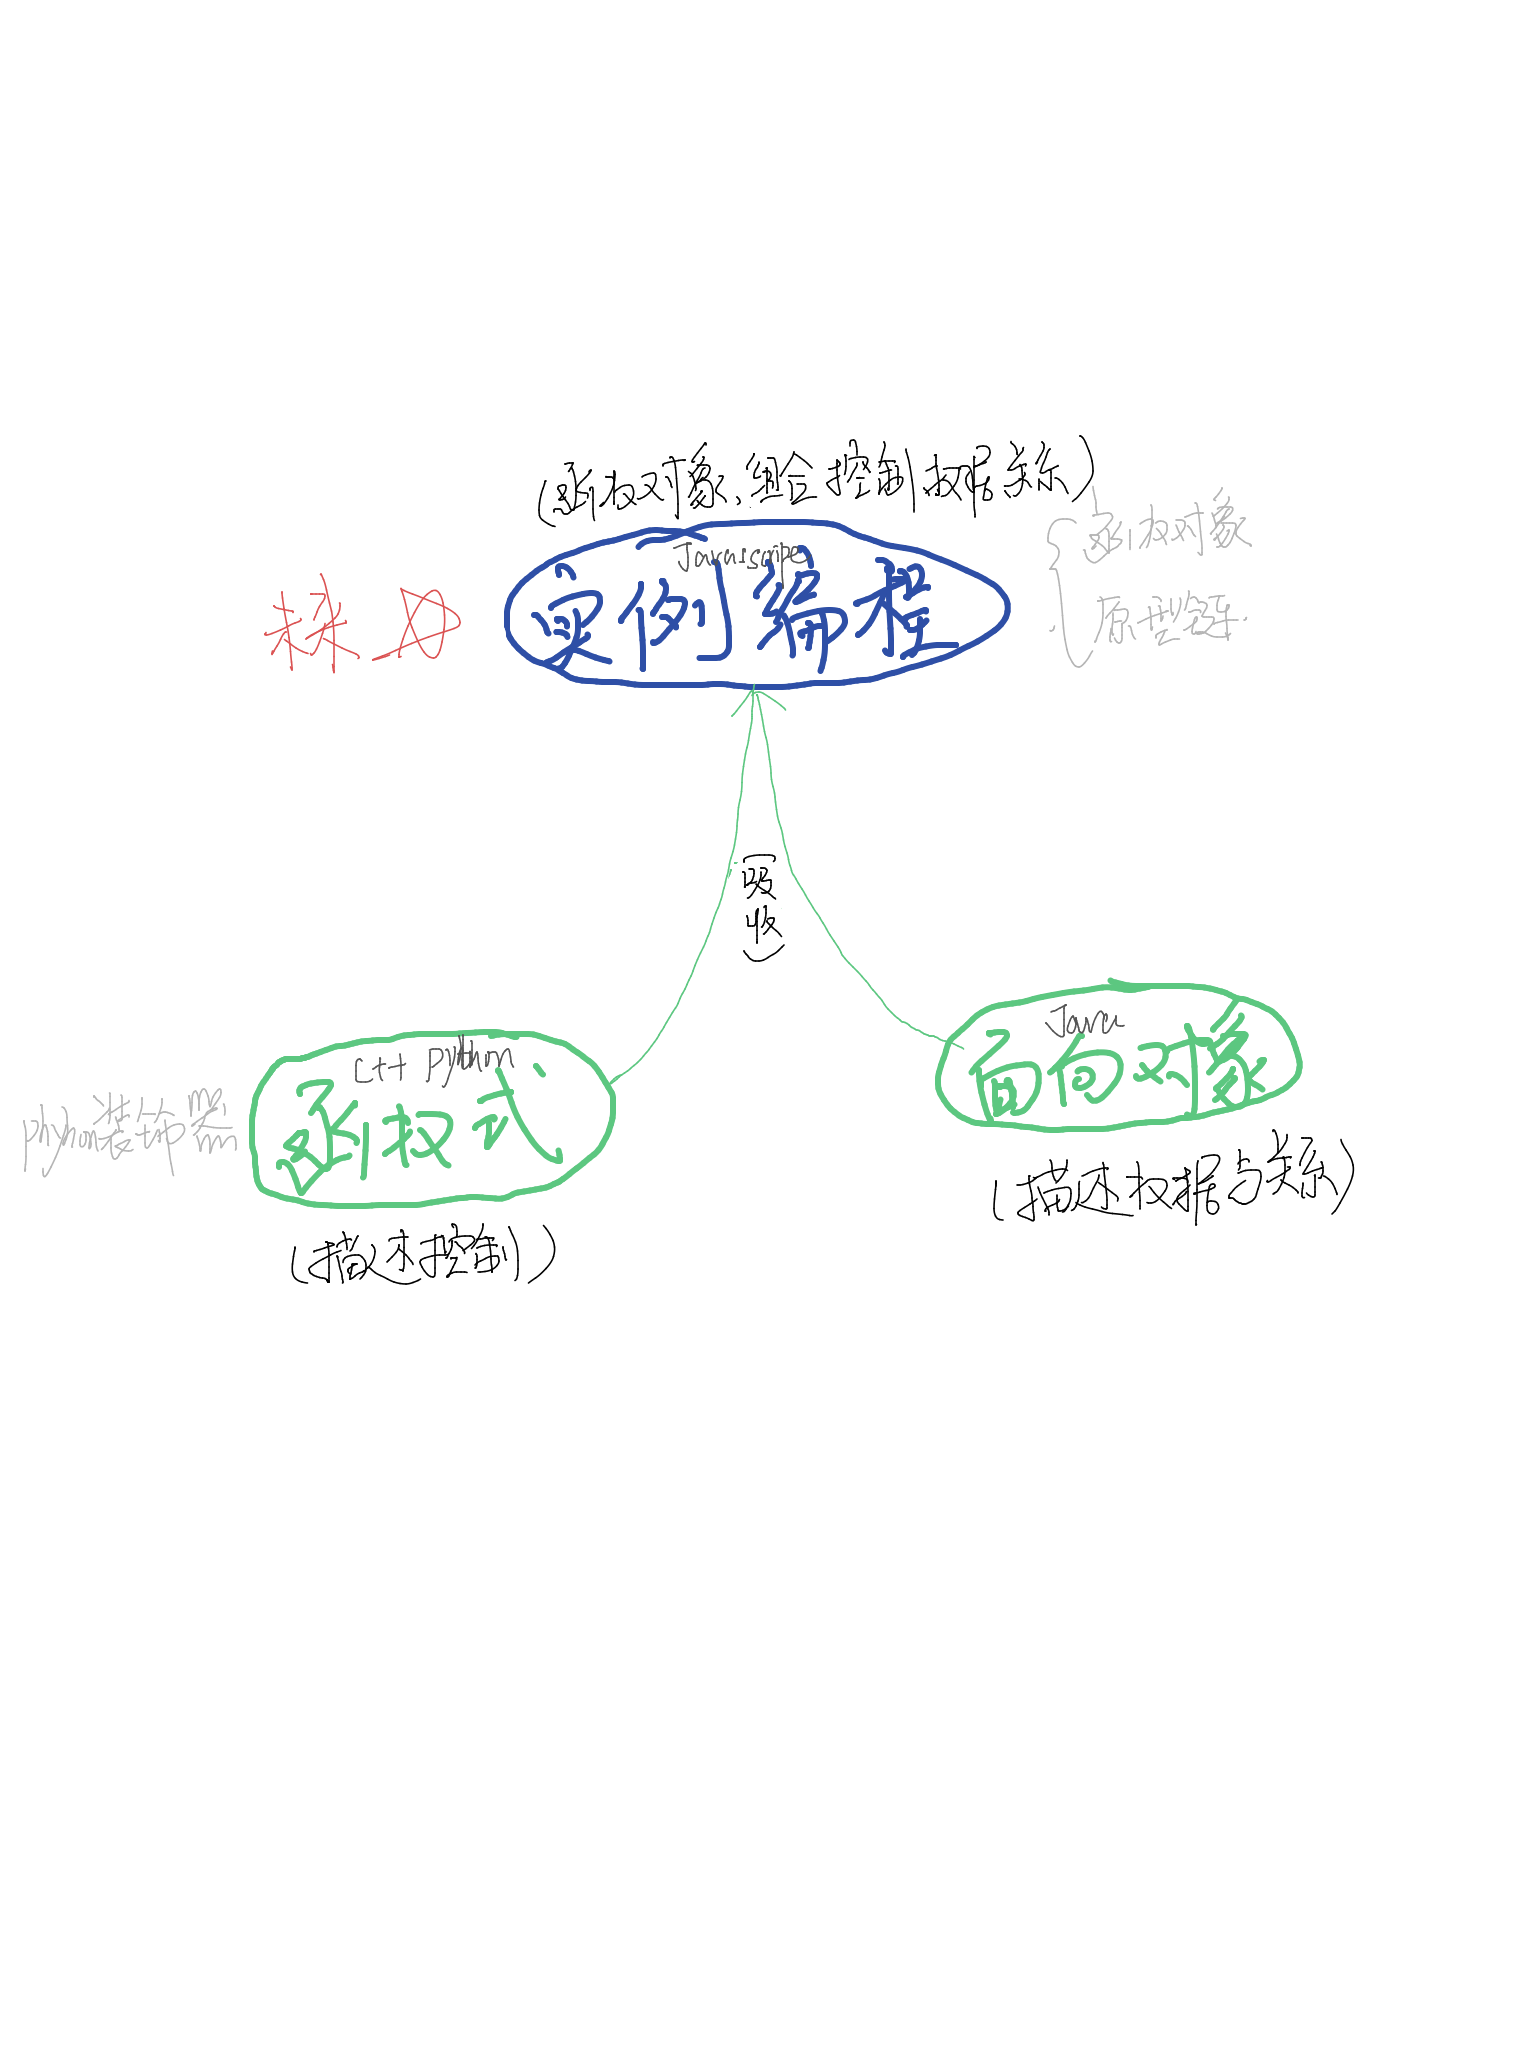 (函权对象、组合控制权据关系)
Javascripe
实例编程
函权对象
原型链
(吸收)
C++ python
函权式
phyhon装饰器
(描述控制)
Java
面向对象
(描述权据与关系)